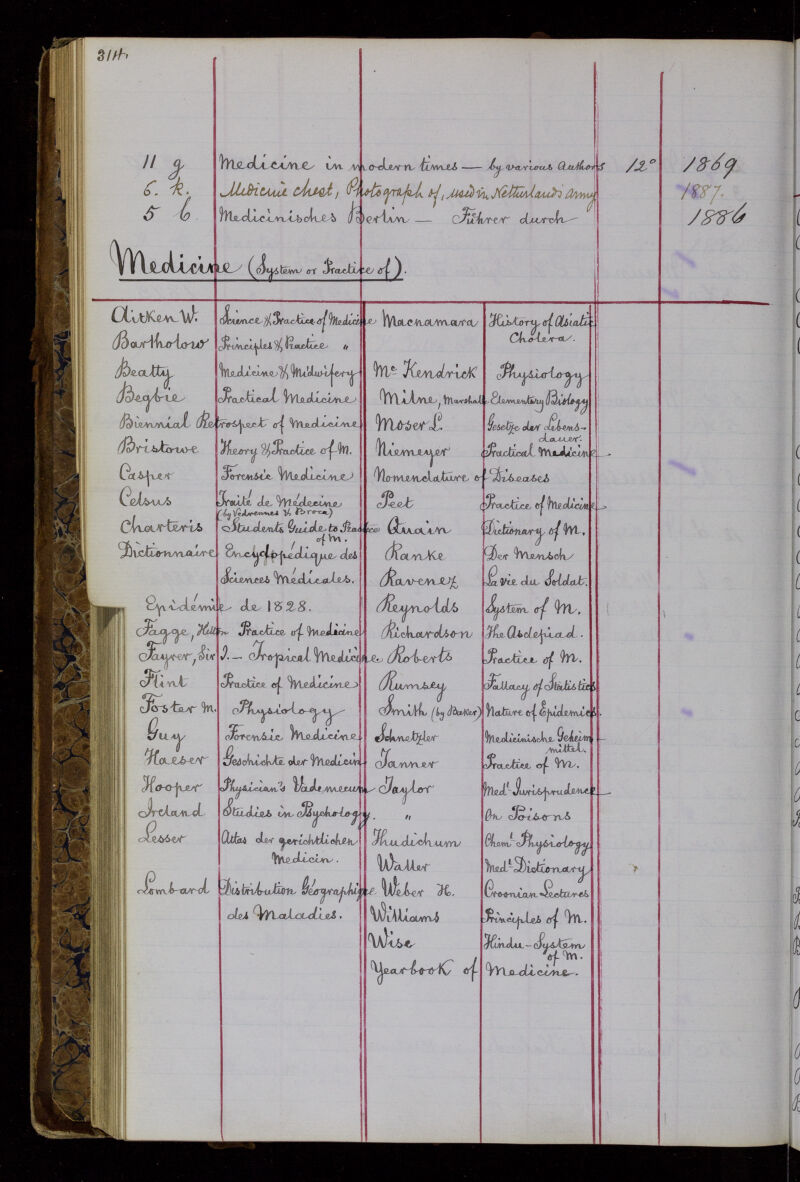 314
11 g Medicine in modern times — by various Authors 12° 1869
6. k. Medicine chest, Photograph of, used in Netherlands Army 1887.
5 b Medicinisches Berlin — Führer durch 1886
Medicine (System or Practice of).
Aitken W. Science & Practice of Medicine
Bartholow Principles & Practice "
Beatty Medicine & Midwifery
Begbie Practical Medicine
Biennial Retrospect of Medicine
Bristowe Theory & Practice of M.
Casper Forensic Medicine
Celsus Traité de Médecine
(by Vedrennes & Broca)
Charteris Students Guide to Practice
of M.
Dictionnaire Encyclopédique des
Sciences Médicales.
Epidémie de 1828.
Fagge, Hilton Practice of Medicine
Fayrer, Sir J. — Tropical Medicine
Flint Practice of Medicine
Foster M. Physiology
Guy Forensic Medicine
Haeser Geschichte der Medicin
Hooper Physician's Vade mecum
Ireland Studies in Psychology.
Lesser Atlas der gerichtlichen
Medicin.
Lombard Distribution Géographique
des Maladies.
Macnamara History of Asiatic
Cholera.
Mc Kendrick Physiology
Milne, Marshall Elementary Biology
Moser L. Gesetze der Lebens-
dauer.
Niemeyer Practical Medicine
Nomenclature of Diseases
Peet Practice of Medicine
Quain Dictionary of M.
Ranke Der Mensch
Ravenez La Vie du Soldat.
Reynolds System of M.
Richardson The Asclepiad.
Roberts Practice of M.
Rumsey Fallacy of Statistics
Smith (by Baker) Nature of Epidemics.
Schnetzler Medicinische Geheim-
mittel.
Tanner Practice of M.
Taylor Med! Jurisprudence
" On Poisons
Thudichum Chem! Physiology
Waller Med! Dictionary
Weber H. Croonian Lectures
Williams Principles of M.
Wise Hindu-System
of M.
Yearbook of Medicine.